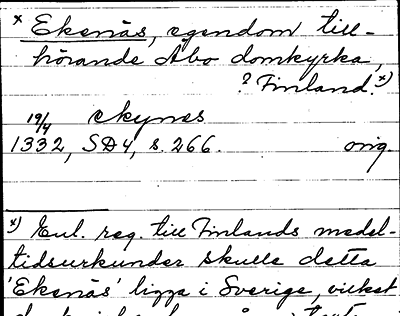 × Ekenäs, egendom till-
hörande Åbo domkyrka,
? Finland. ×)
19/4 ekynes
1332, SD4, s. 266. orig.
×) Enl. reg. till Finlands medel-
tidsurkunder skulle detta
'Ekenäs' ligga i Sverige, vilket